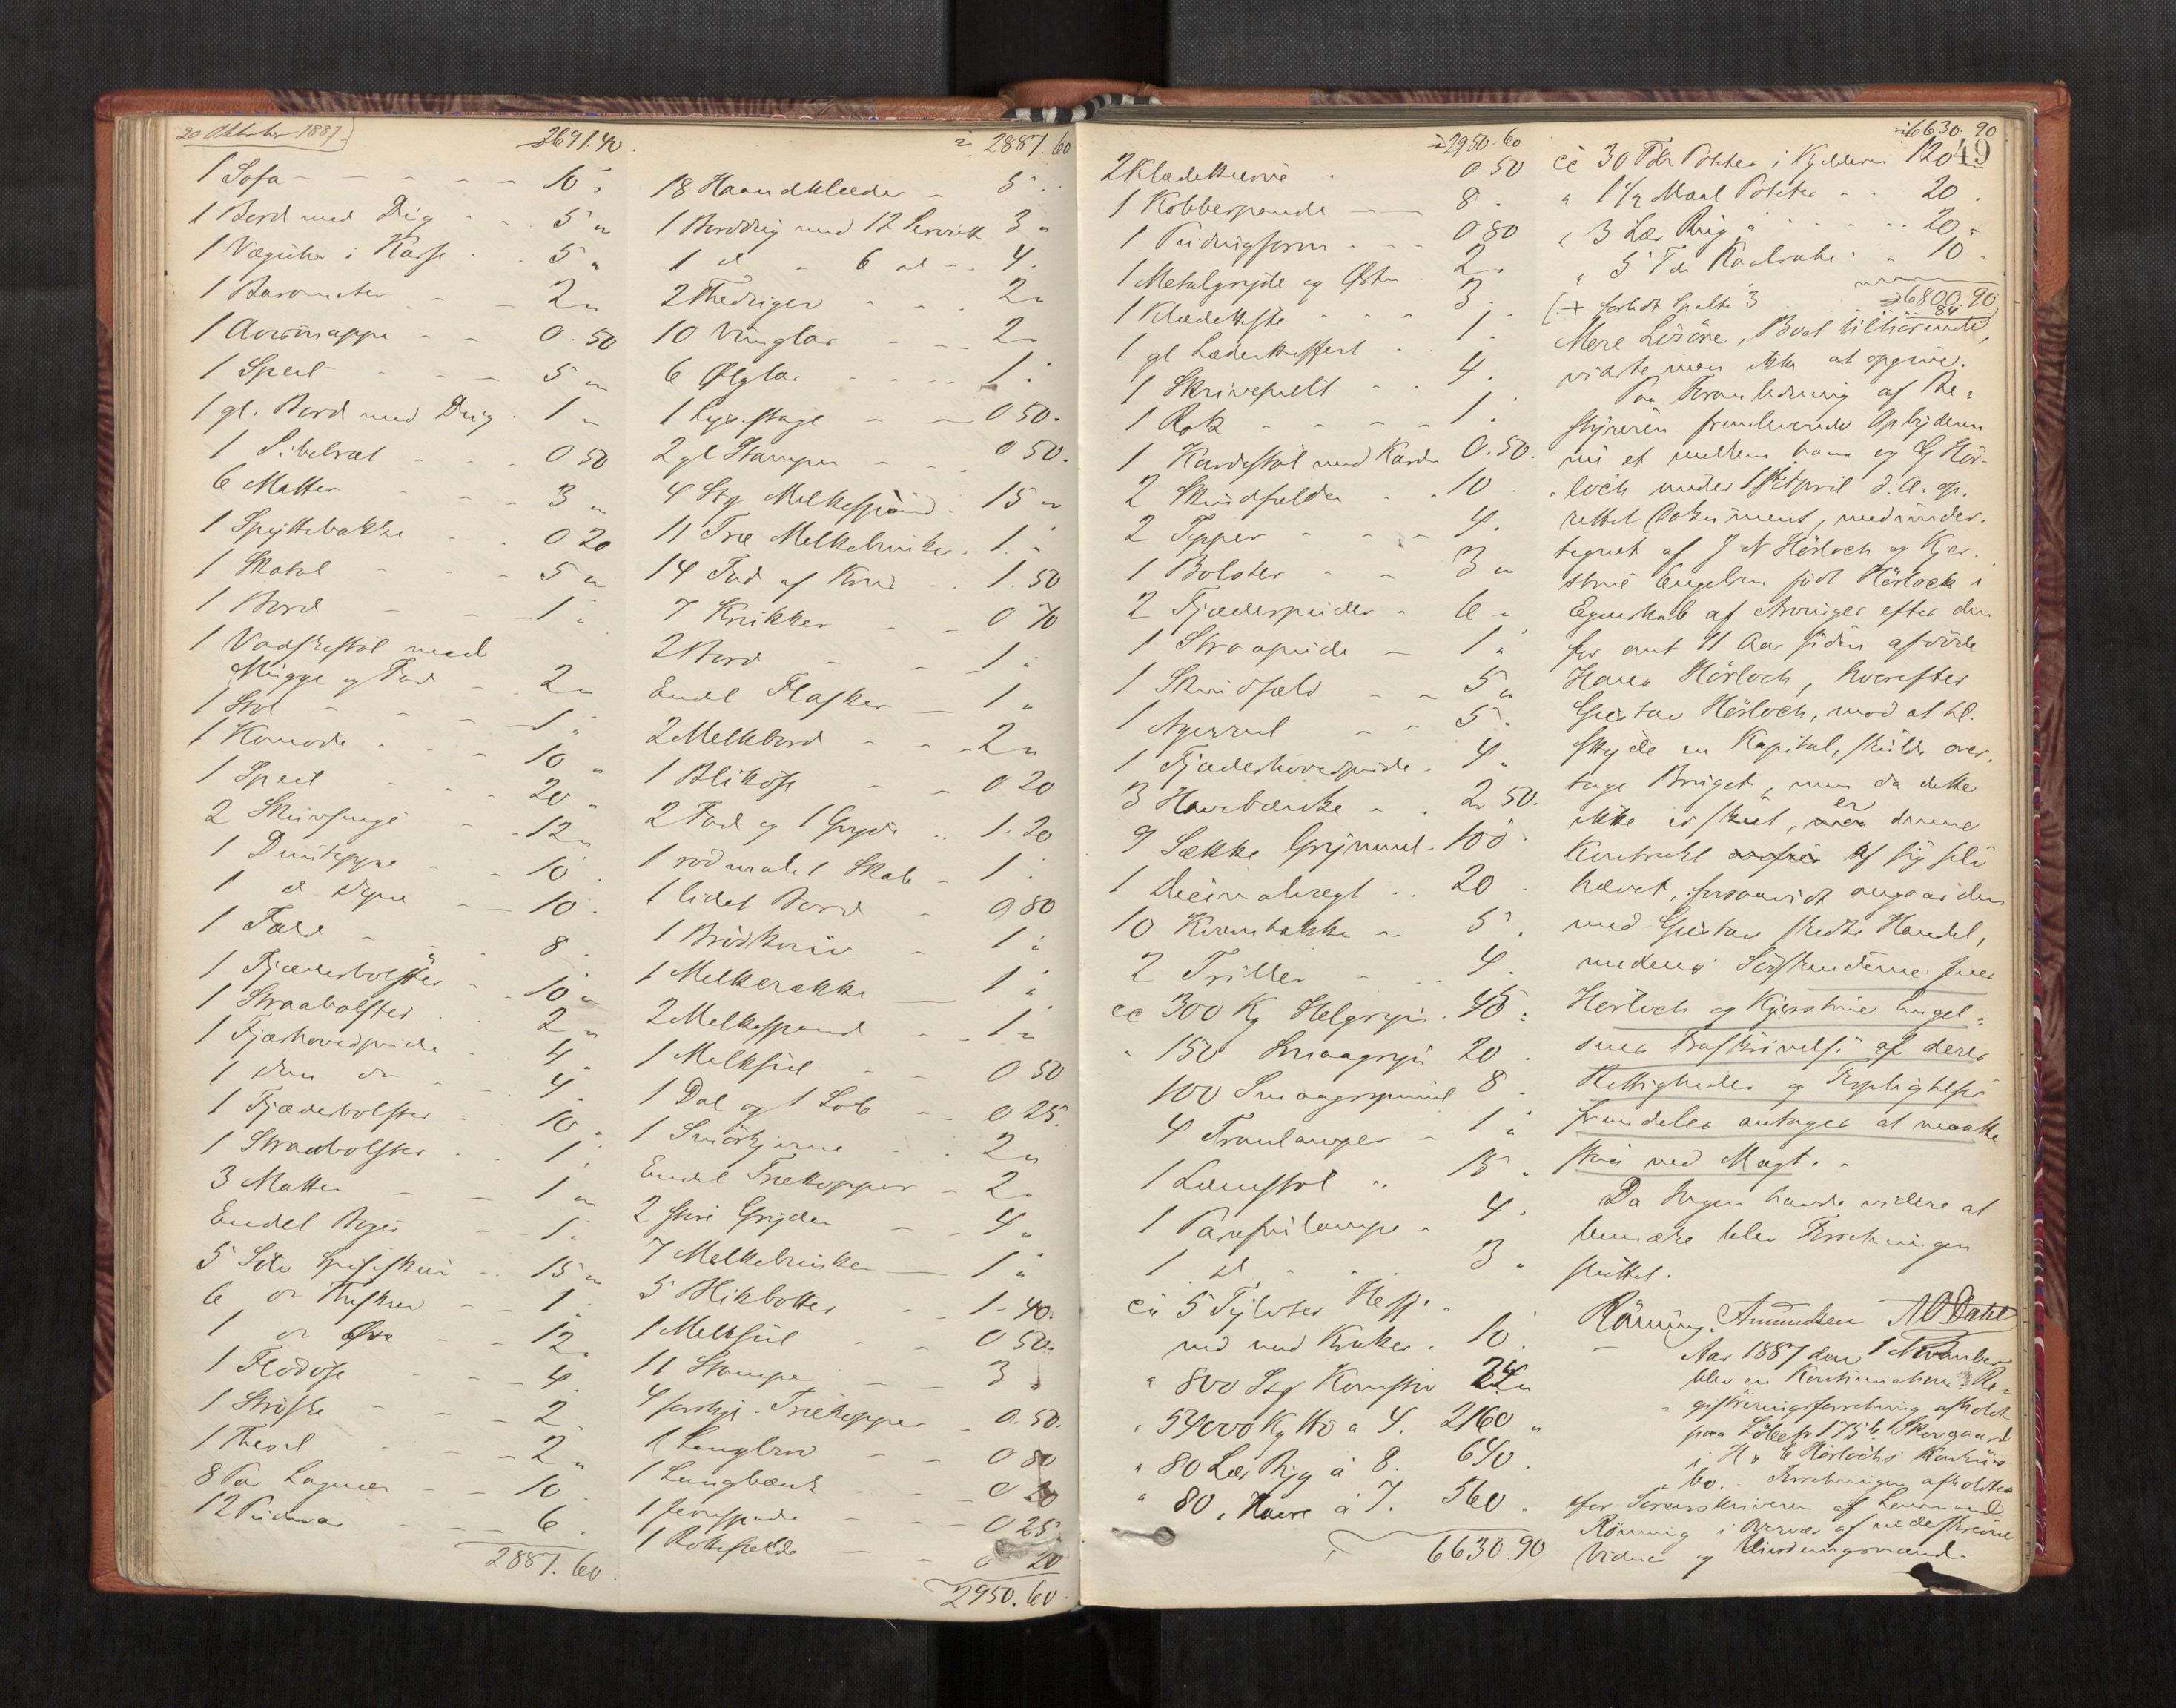 20 Oktober 1887
2691.40.
1 Sofa - - - - - 10 "
1 Bord med Dug - - 5 "
1 Væguhr i Kasse - - 5 "
1 Barometer - - 2 "
1 Avismappe - - 0.50
1 Speil - - - 5 "
1 gl. Bord med Dug - 1 "
1 - - - 0 50
6 Matter - - 3 "
1 Spyttebakke - - 0 20
1 Skatol - - - 5 "
1 Bord - - 1 "
1 Vadskestol med
Mugge og Fad - 2 "
1 Stol - - - - 1 "
1 Komode - - - 10 "
1 Speil - - 20 "
2 - - 12 "
1 Duntæppe - - 10 .
1 d Dyne - - 10 .
1 - - 8 .
1 Fjæderbolster - - 10 "
1 Straabolster - - 2 "
1 Fjærhovedpude - 4 "
1 dun do - - 4 .
1 Fjæderbolster - 10 "
1 Straabolster - - 1 .
3 Matter - - 1 "
Endel Bøger - - 1 .
5 Sølv Spiseskeer - - 15 "
6 do Theskeer - - 1 .
1 do Øse - - 12 .
1 Flødøse - - 4 .
1 Strøske - - - 2 .
1 - - - 2 "
8 Par Lagner - - 10 .
12 Pudevar - - - 6 .
2887.60.
2887.60
18 Haandklæder - 5 .
1 Borddug med 12 Serviet 3 "
1 d " 6 d - - 4 .
2 Theduger - - - 2 "
10 Vinglas - - - 2 "
6 Ølglas - - - 1 .
1 Lysestage - - 0 50 .
2 gl Stamper - - - 0 50 .
4 Stg Melkespand - 15 "
11 Træ Melkebunker - 1 . "
14 Fad af - - 1.50
7 Krukker - - 0 70
2 Bord - - 1 "
Endel Flasker - 1 "
2 Melkbord - - 2 "
1 Blikøse - - 0 20
2 Fad og 1 Gryde - - 1.20
1 rødmalet Skab - 1 .
1 lidet Bord - 0 80
1 Brødkniv - - 1 "
1 Melkerække - 1 "
2 Melkespand - 1 "
1 Melksiil - - 0 50
1 Dal og 1 - - 0 25.
1 Smørkjerne - - 2 "
Endel Trækopper - 2 .
2 store Gryder - 4 "
7 Melkebunker - 1 "
5 Blikbøtter - 1.40.
1 Melksiil - - 0 50.
11 Stamper - - 3 "
4 forskj. Trækopper - 0.50.
1 - - 0 80
1 Langbænk - - 0 20
1 - - 0 25.
1 - - 0 20
2950.60.
49
2950.60
2 Klædekurve - 0 50
1 Kobberpande - - 8 .
1 Pudingform - - - 0 80
1 Metalgryde og Østen - 2 .
1 Klædekiste - - - 3 .
1 gl Læderkuffert - - 1 .
1 Skrivepult - - 4 .
1 Rok - - - - 1 .
1 Kardestol med Karder 0.50.
2 Skindfelder - - 10 .
2 Tepper - - - 4 .
1 Bolster - - 3 "
2 Fjæderpuder - 6 "
1 Straapude - 1 "
1 Skindfeld - - 5 "
1 - - 5 .
1 Fjæderhovedpude - 4 "
3 Havebænke - - 2 50.
9 Sække Grynmel - 100 .
1 Decimalvegt . . 20 .
10 - - 5 .
2 Triller - - 4 .
ca 300 Kg Helgryn - 45 .
" 150 Smaagryn 20 .
100 Smaagrynmel 8 .
4 Tranlamper - 1 "
1 Lænstol " 15 .
1 Parafinlampe - 4 .
1 d " . 3 "
ca 5 Tylvter Hesje-
ved med Kraker . 10 .
" 800 Kornstør 24 "
" 54000 Kg Hø a 4. 2160 "
" 80 Læs Byg á 8. 640 .
" 80 " Havre á 7. 560 .
6630.90
6630.90
ca 30 Tdr Poteter i Kjelderen 120 .
" 1½ Maal Poteter - - 20 .
" 3 Læs Rug - - - 20 .
" 5 Tdr Kaalrabi - " 10 .
(+ forladt Spalte 3 6800.90
84
Mere Løsøre, Boet tilhørende,
vidste man ikke at opgive.
Paa Foranledning af Be-
styreren fremlevende Opbyderen
nu et mellem ham og G Hör-
loch under 1ste April d. A. op-
rettet Dokument, medunder-
tegnet af J N Hörloch og Kjer-
stine Engelsen født Hörloch i
Egenskab af Arvinger efter den
for omt 11 Aar siden afdøde
Hans Hörloch, hvorefter
Gustav Hörloch, mod at til-
skyde en Kapital, skulde over-
tage Bruget, men da dette
ikke er skeet, er denne
Kontrakt af sig selv
hævet, forsaavidt angaar den
med Gustav skedte Handel,
medens Sødskenderne Jens
Hörloch og Kjerstine Engel-
sens Fraskrivelse af deres
Rettigheder og Forpligtelser
fremdeles antages at maatte
staa ved Magt. -
Da Ingen havde videre at
bemærke blev Forretningen
sluttet.
Rönning. Amundsen A O Dahl
Aar 1887 den 1 November
blev en Kontinuations Re-
gistreringsforretning afholdt
paa Løbe No 175 b Skovgaard
i H. C Hörlochs Konkurs-
bo. Forretningen afholdtes
for Sorenskriveren af Lensmand
Rönning i Overvær af underskrevne
Vidner og Vurderingsmænd.